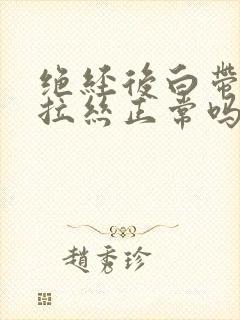 绝经後白帶
拉丝正常吗
趙秀珍